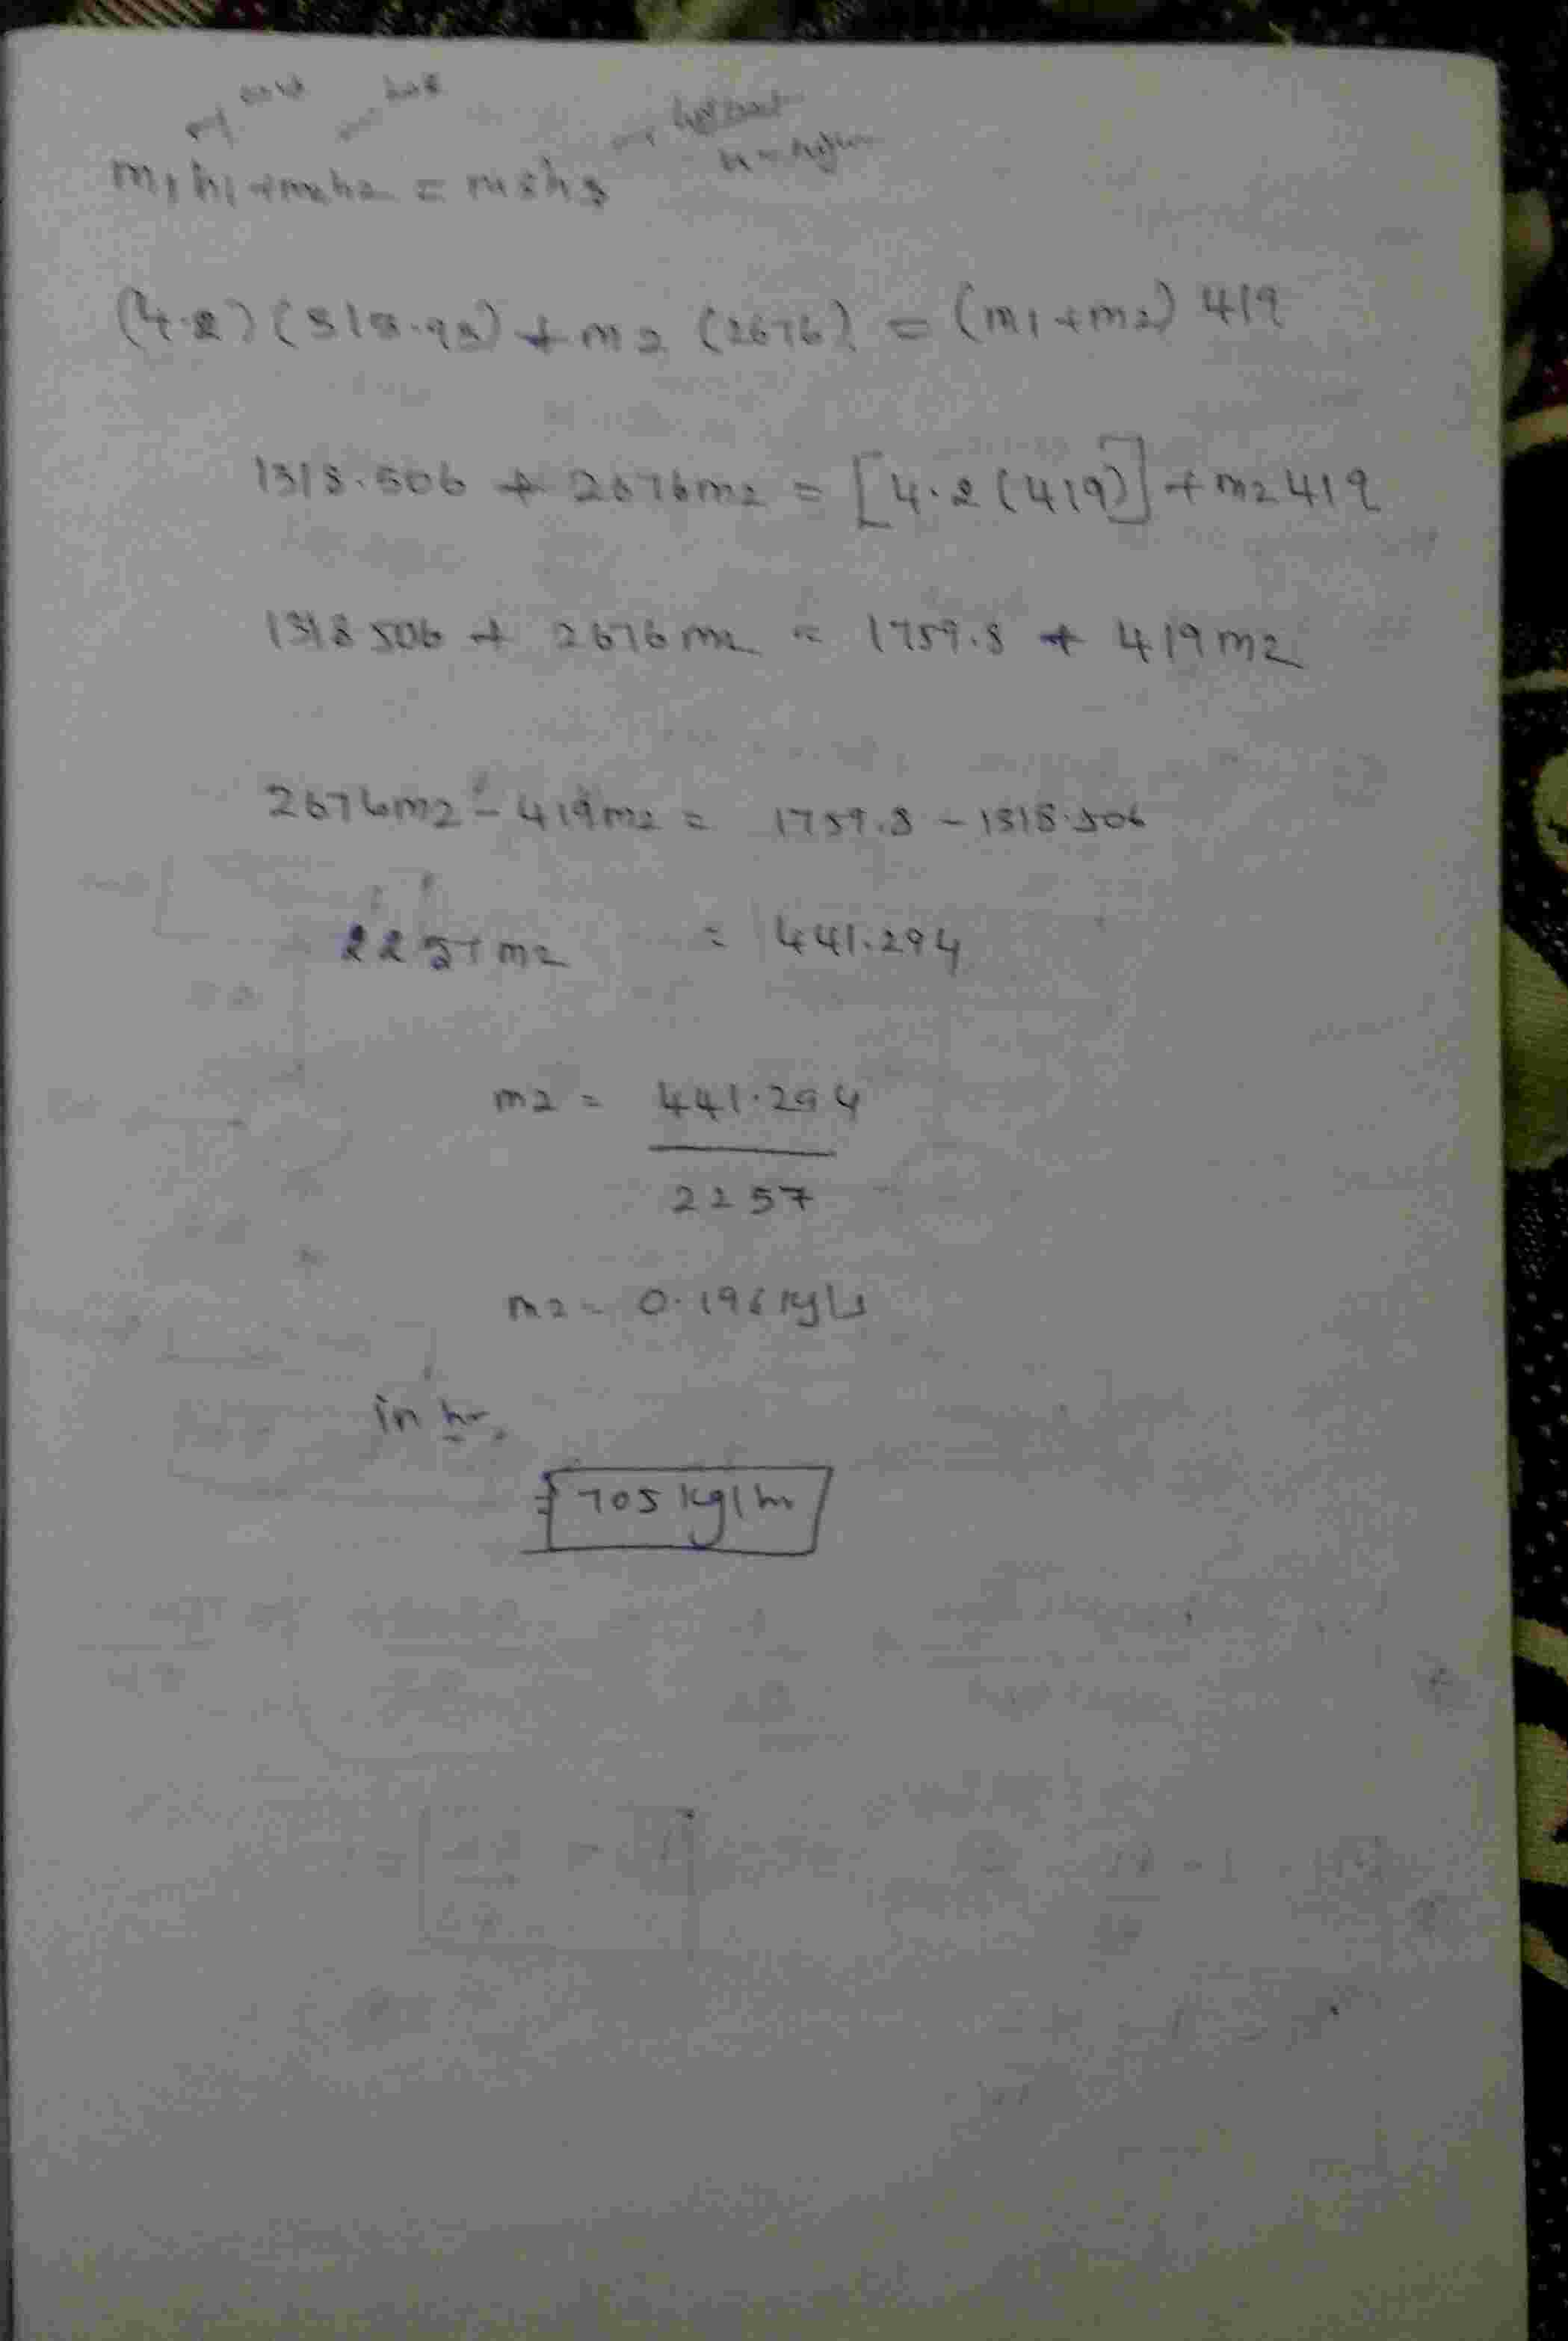 m1h1+m2h2 = m3h3
(4.2)(313.93) + m2 (2676) = (m1+m2) 419
1318.506 + 2676m2 = [4.2(419)] + m2 419
1318.506 + 2676 m2 = 1759.8 + 419 m2
2676m2 - 419m2 = 1759.8 - 1318.506
2257 m2 = 441.294
m2 = 441.294
2257
m2 = 0.196 kg/s
in hr,
= 705 kg/hr